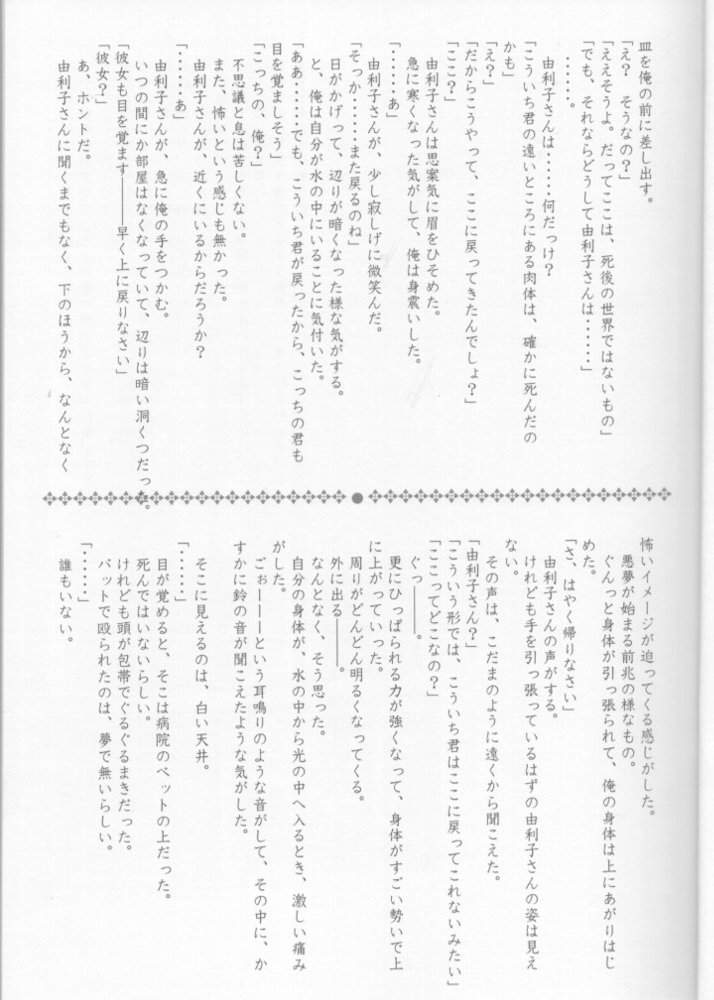 皿を俺の前に差し出す。
「え？　そうなの？」
「ええそうよ。だってここは、死後の世界ではないもの」
「でも、それならどうして由利子さんは・・・・・・」
・・・・・・。
由利子さんは・・・・・・何だっけ？
「こういち君の遠いところにある肉体は、確かに死んだの
かも」
「え？」
「だからこうやって、ここに戻ってきたんでしょ？」
「ここ？」
由利子さんは思案気に眉をひそめた。
急に寒くなった気がして、俺は身震いした。
「・・・・・あ」
由利子さんが、少し寂しげに微笑んだ。
「そっか・・・・・・また戻るのね」
日がかげって、辺りが暗くなった様な気がする。
と、俺は自分が水の中にいることに気付いた。
「ああ・・・・・・でも、こういち君が戻ったから、こっちの君も
目を覚ましそう」
「こっちの、俺？」
不思議と息は苦しくない。
また、怖いという感じも無かった。
由利子さんが、近くにいるからだろうか？
「・・・・・あ」
由利子さんが、急に俺の手をつかむ。
いつの間にか部屋はなくなっていて、辺りは暗い洞くつだった。
「彼女も目を覚ます――――早く上に戻りなさい」
「彼女？」
あ、ホントだ。
由利子さんに聞くまでもなく、下のほうから、なんとなく
怖いイメージが迫ってくる感じがした。
悪夢が始まる前兆の様なもの。
ぐんっと身体が引っ張られて、俺の身体は上にあがりはじ
めた。
「さ、はやく帰りなさい」
由利子さんの声がする。
けれども手を引っ張っているはずの由利子さんの姿は見え
ない。
その声は、こだまのように遠くから聞こえた。
「由利子さん？」
「こういう形では、こういち君はここに戻ってこれないみたい」
「ここってどこなの？」
ぐっ――――。
更にひっぱられる力が強くなって、身体がすごい勢いで上
に上がっていった。
周りがどんどん明るくなってくる。
外に出る――――。
なんとなく、そう思った。
自分の身体が、水の中から光の中へ入るとき、激しい痛み
がした。
ごぉーーーという耳鳴りのような音がして、その中に、か
すかに鈴の音が聞こえたような気がした。
そこに見えるのは、白い天井。
「・・・・・」
目が覚めると、そこは病院のベットの上だった。
死んではいないらしい。
けれども頭が包帯でぐるぐるまきだった。
バットで殴られたのは、夢で無いらしい。
「・・・・・」
誰もいない。